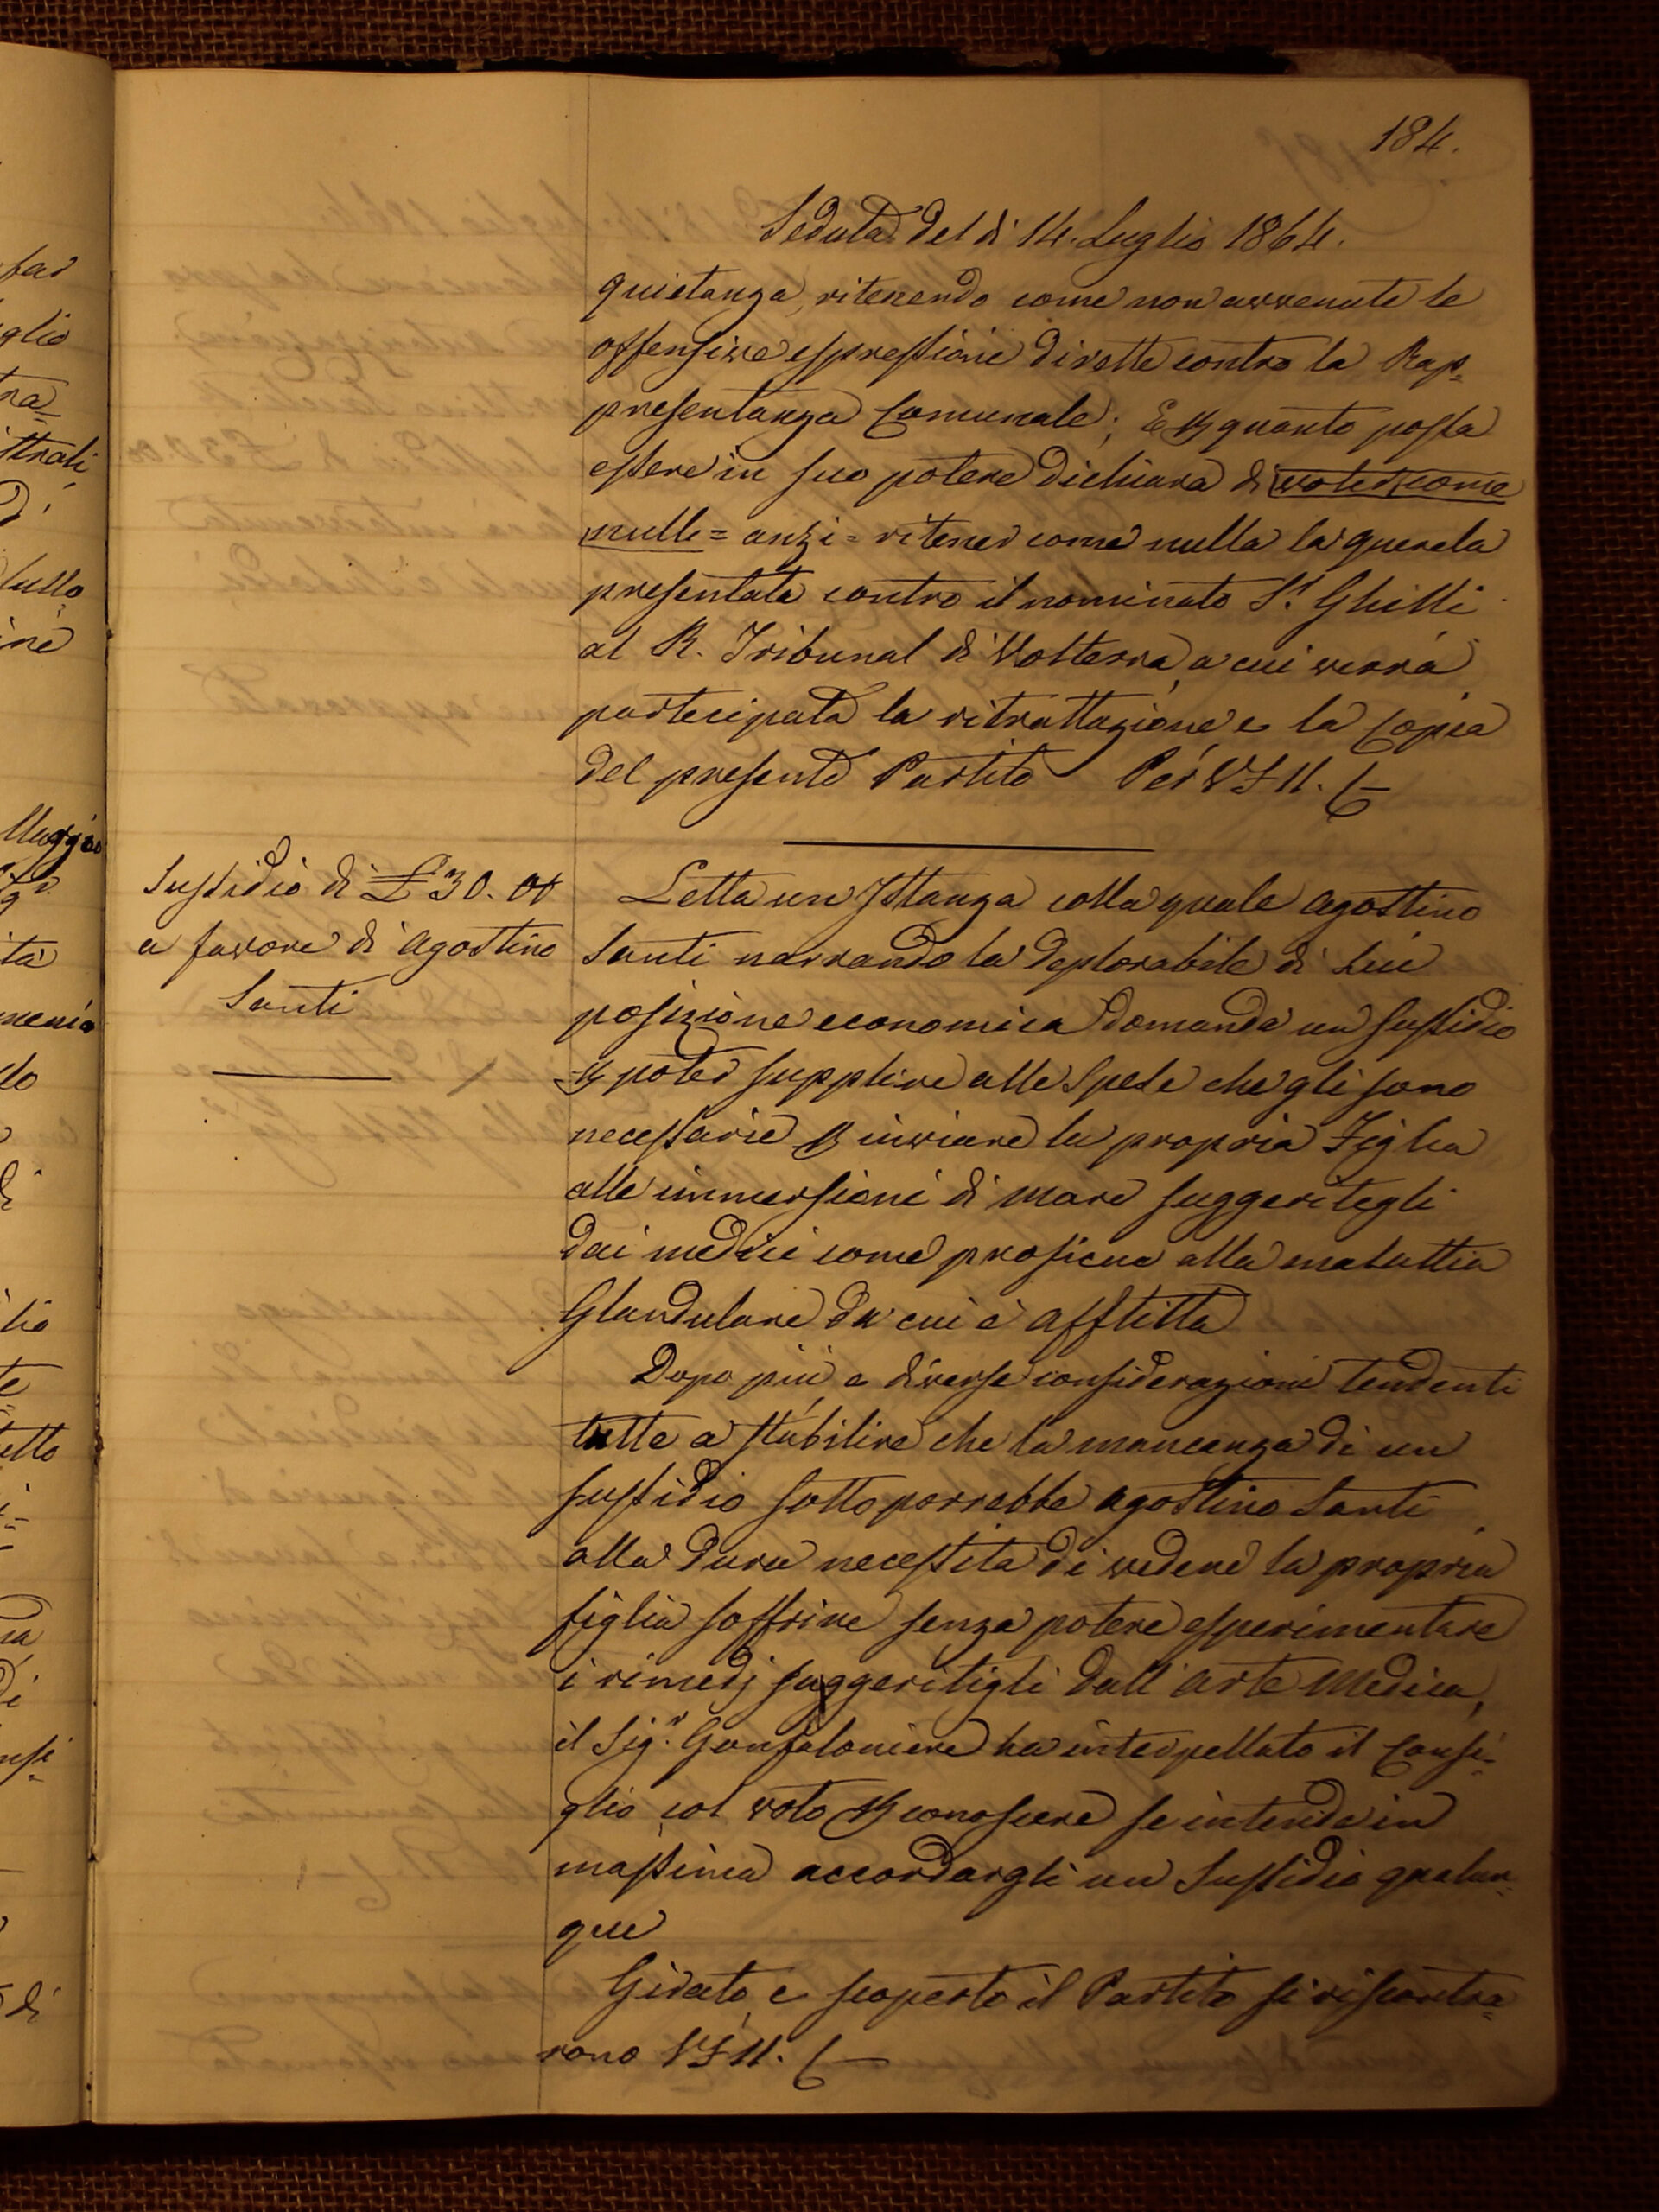 184.
Seduta del dì 14. Luglio 1864.
quietanza, ritenendo come non avvenute le
offensive espressioni dirette contro la Rap=
presentanza Comunale; E p quanto possa
essere in suo potere dichiara di voler come
nulle = anzi = ritener come nulla la querela
presentata contro il nominato S.r Ghilli
al R. Tribunal di Volterra, a cui verrà
partecipata la ritrattazione e la Copia
del presente Partito Per VF 11. C—
Sussidio di £ 30. 00
a favore di Agostino
Santi
Letta un Istanza colla quale Agostino
Santi narrando la deplorabile di Lui
posizione economica domanda un sussidio
p poter supplire alle Spese che gli sono
necessarie p inviare la propria Figlia
alle immersioni di Mare suggeritegli
dai medici come proficua alla malattia
Glandulare da cui è afflitta
Dopo più, e diverse considerazioni tendenti
tutte a stabilire che la mancanza di un
sussidio sottoporrebbe Agostino Santi
alla dura necessità di vedere la propria
figlia soffrire senza potere esperimentare
i rimedj suggeritigli dall'arte Medica,
il Sig.r Gonfaloniere ha interpellato il Consi=
glio col voto p conoscere se intende in
massima accordargli un Sussidio qualun=
que
Girato, e scoperto il Partito si riscontra=
rono VF 11. C—